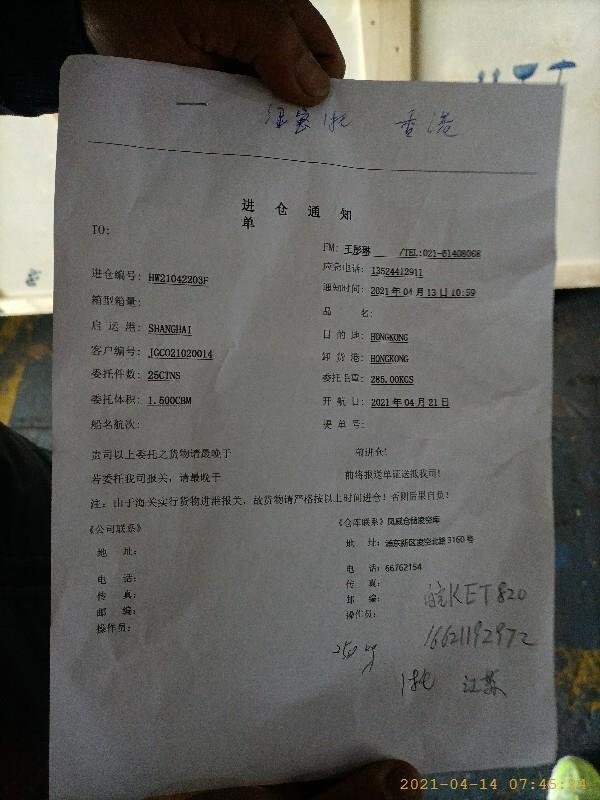 香港
进仓通知
单
TO:
FM: 王彤琳 /TEL:021-61408068
进仓编号: HW21042203F
应急电话: 13524412911
箱型箱量:
通知时间: 2021年04月13日10:59
启运港: SHANGHAI
品 名:
客户编号: JGC021020014
目的地: HONGKONG
委托件数: 25CTNS
卸货港: HONGKONG
委托体积: 1.500CBM
委托毛重: 285.00KGS
船名航次:
开航日: 2021年04月21日
提单号:
贵司以上委托之货物请最晚于 前进仓!
若委托我司报关, 请最晚于 前将报送单证送抵我司!
注: 由于海关实行货物进港报关, 故货物请严格按以上时间进仓! 否则后果自负!
《公司联系》
地 址:
电 话:
传 真:
邮 编:
操作员:
《仓库联系》凤威仓储凌空库
地 址: 浦东新区凌空北路3160号
电 话: 66762154
传 真:
邮 编:
操作员:
皖KET820
16621192972
250 kg
1托 江苏
2021-04-14 07:45:24